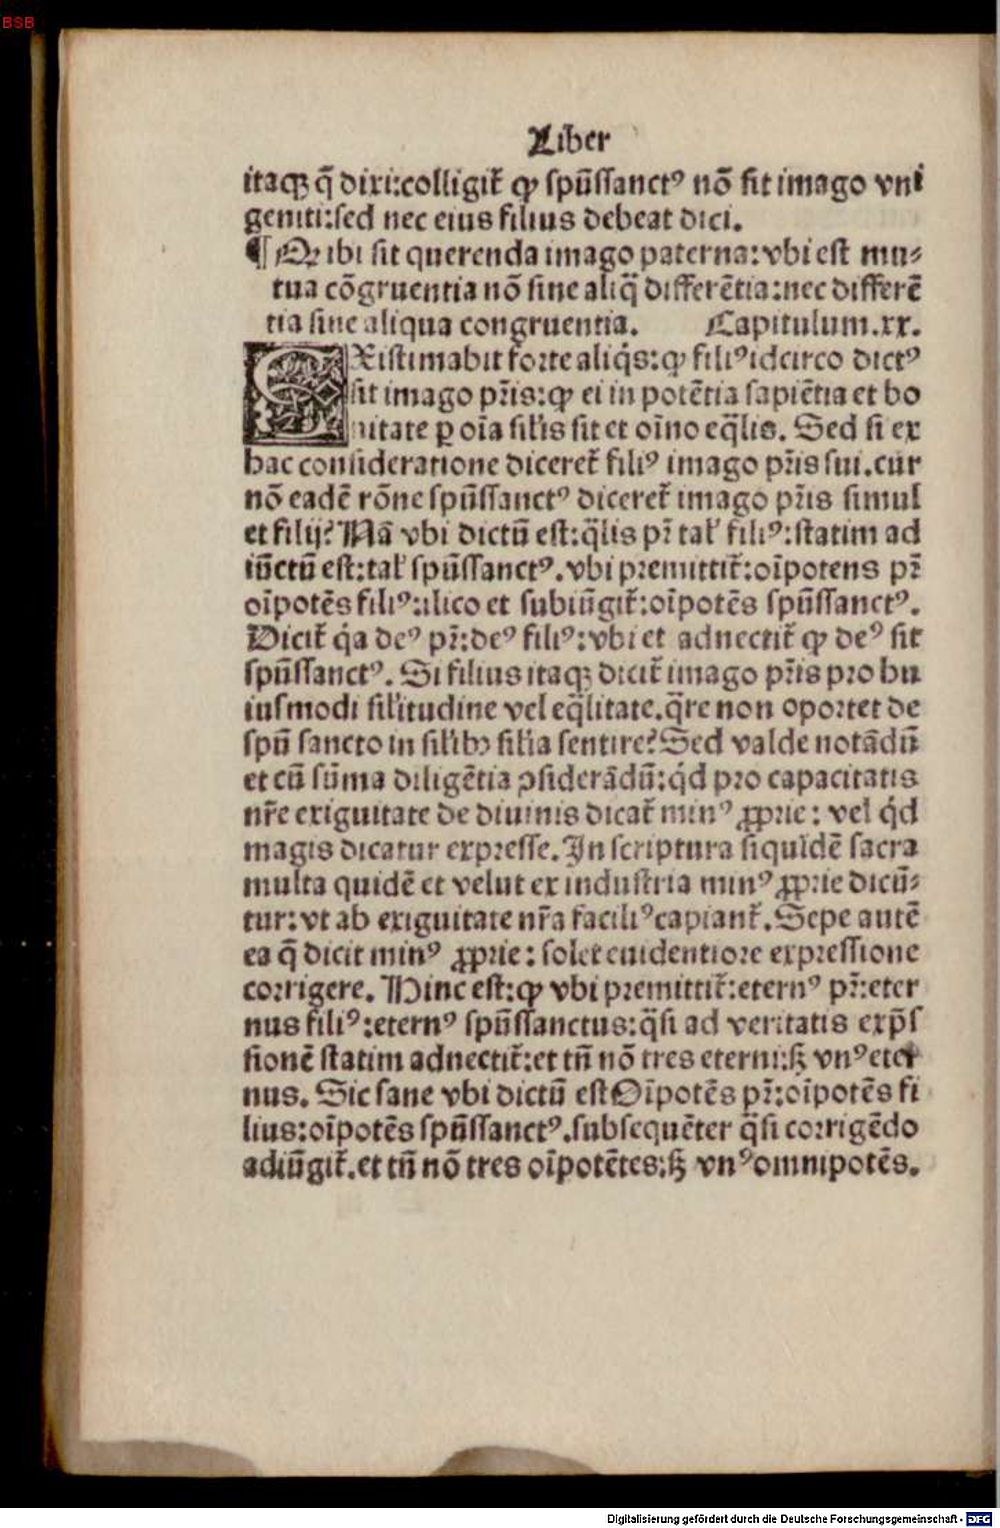 BSB
Liber
itaqꝫ q̃ dixi:colligit̃ ꝙ spũssanctꝰ nõ sit imago vni
geniti:sed nec eius filius debeat dici.
¶ Q ibi sit querenda imago paterna:vbi est mu⸗
tua cõgruentia nõ sine aliq̃ differẽtia:nec differẽ
tia sine aliqua congruentia. Capitulum.xx.
EXistimabit forte aliq̃s:ꝙ filiꝰ idcirco dictꝰ
sit imago pr̃is:ꝙ ei in potẽtia sapiẽtia et bo
nitate ꝑ oĩa sil'is sit et oĩno eq̃lis. Sed si ex
hac consideratione diceret̃ filiꝰ imago pr̃is sui.cur
nõ eadẽ rõne spũssanctꝰ diceret̃ imago pr̃is simul
et filij? Nã vbi dictũ est:q̃lis pr̃ tal' filiꝰ:statim ad
iũctũ est:tal' spũssanctꝰ.vbi premittit̃:oĩpotens pr̃
oĩpotẽs filiꝰ:ilico et subiũgit̃:oĩpotẽs spũssanctꝰ.
Dicit̃ q̃a deꝰ pr̃:deꝰ filiꝰ:vbi et adnectit̃ ꝙ deꝰ sit
spũssanctꝰ. Si filius itaqꝫ dicit̃ imago pr̃is pro hu
iusmodi sil'itudine vel eq̃litate.q̃re non oportet de
spũ sancto in sil'ibꝫ sil'ia sentire? Sed valde notãdũ
et cũ sũma diligẽtia ꝯsiderãdũ:q̃d pro capacitatis
nr̃e exiguitate de diuinis dicat̃ minꝰ ꝓprie: vel q̃d
magis dicatur expresse. In scriptura siquidẽ sacra
multa quidẽ et velut ex industria minꝰ ꝓprie dicũ⸗
tur:vt ab exiguitate nr̃a faciliꝰ capiant̃. Sepe autẽ
ea q̃ dicit minꝰ ꝓprie: solet euidentiore expressione
corrigere. Hinc est:ꝙ vbi premittit̃:eternꝰ pr̃:eter
nus filiꝰ:eternꝰ spũssanctus:q̃si ad veritatis exp̃s
sionẽ statim adnectit̃:et tñ nõ tres eterni:sꝫ vnꝰ eter
nus. Sic sane vbi dictũ est Oĩpotẽs pr̃:oĩpotẽs fi
lius:oĩpotẽs spũssanctꝰ.subsequẽter q̃si corrigẽdo
adiũgit̃.et tñ nõ tres oĩpotẽtes:sꝫ vnꝰ omnipotẽs.
Digitalisierung gefördert durch die Deutsche Forschungsgemeinschaft - DFG